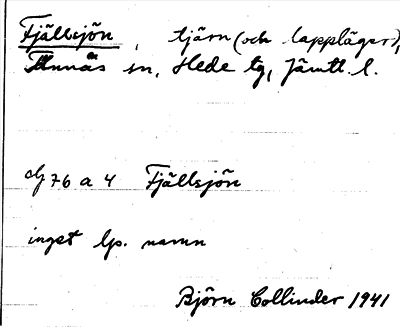 Fjällsjön, tjärn (och lappläger),
Tännäs sn, Hede tg, Jämtl. l.
dj 76 a 4 Fjällsjön
inget lp. namn
Björn Collinder 1941